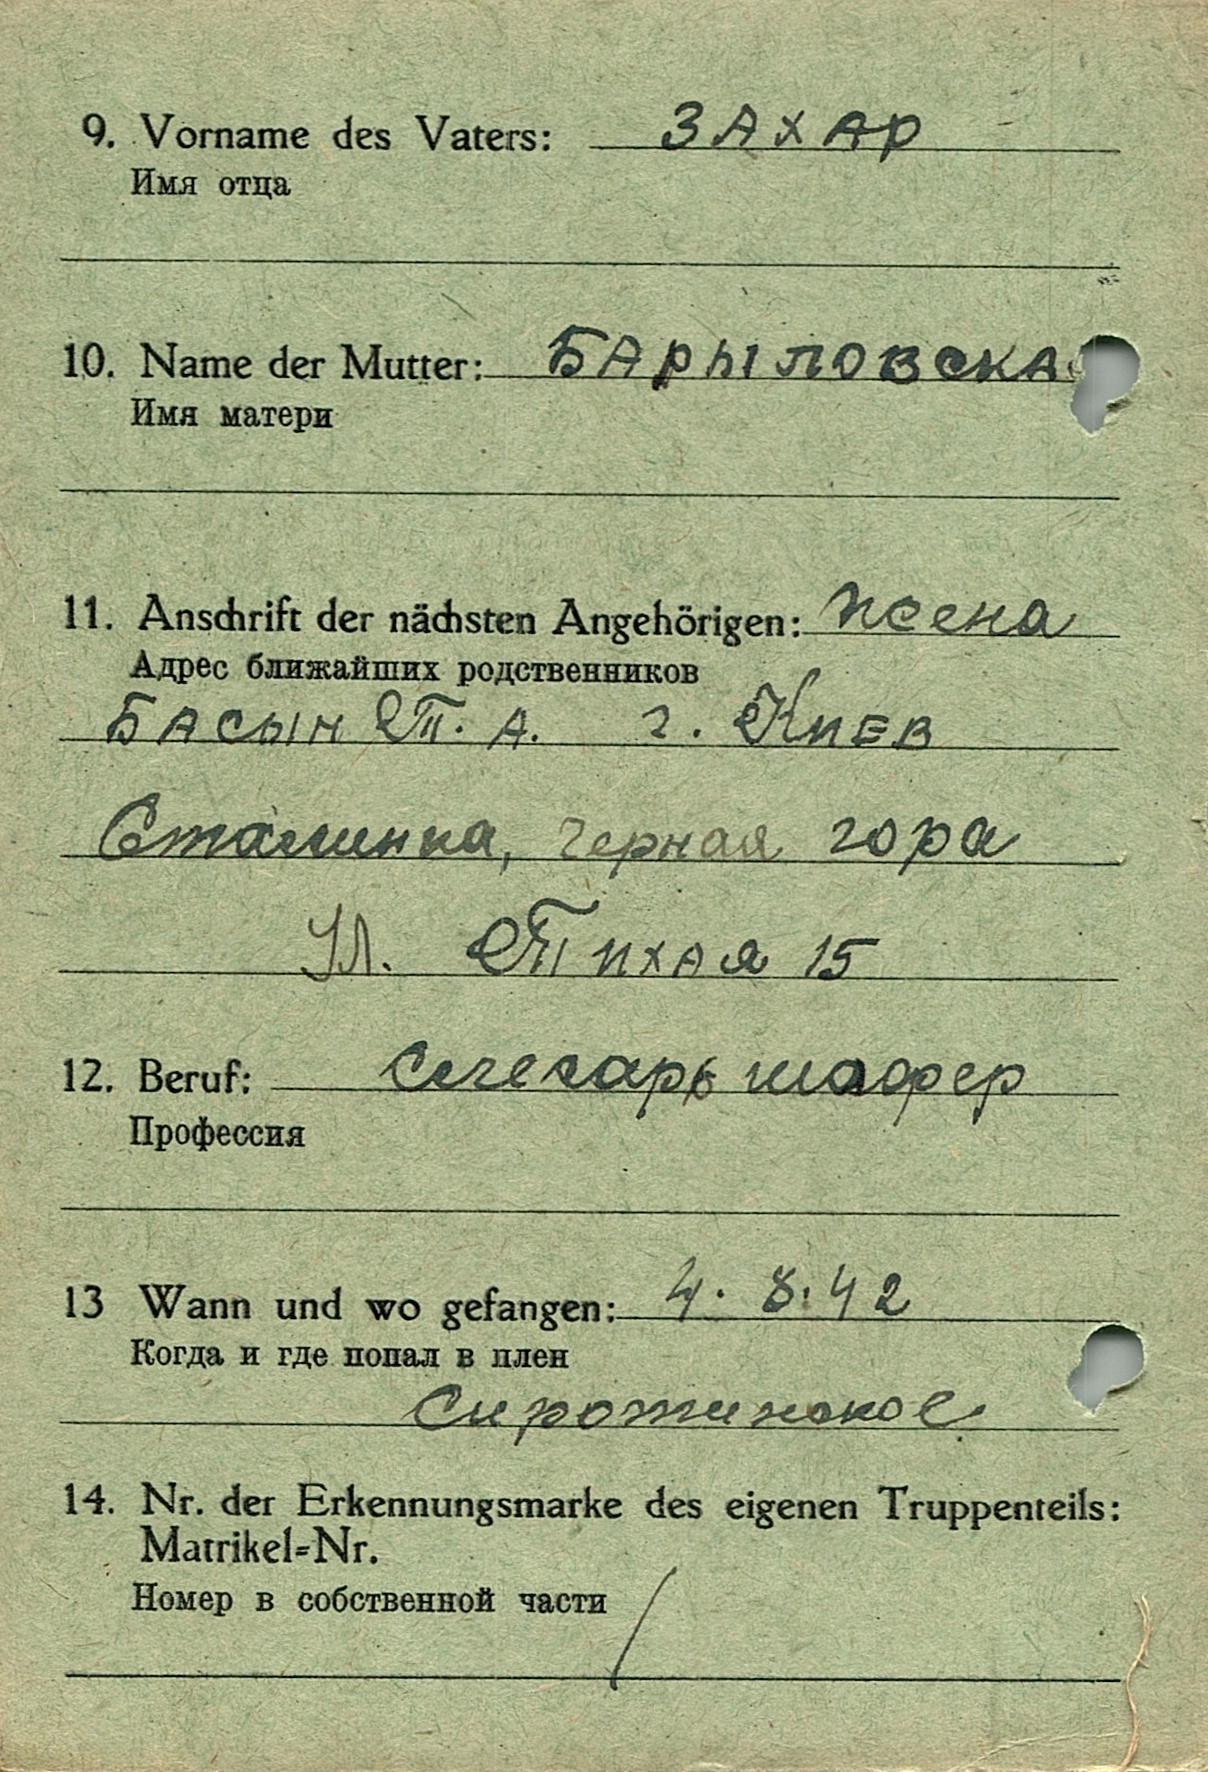 9. Vorname des Vaters: ЗАХАР
Имя отца
10. Name der Mutter: БАРЫЛОВСКА
Имя матери
11. Anschrift der nächsten Angehörigen: жена
Адрес ближайших родственников
БАСЫН Т. А. г. КИЕВ
Сталинка, Черная гора
Ул. Тихая 15
12. Beruf: слесарь шафер
Профессия
13 Wann und wo gefangen: 4. 8. 42
Когда и где попал в плен
Сиротинское
14. Nr. der Erkennungsmarke des eigenen Truppenteils:
Matrikel=Nr.
Номер в собственной части /